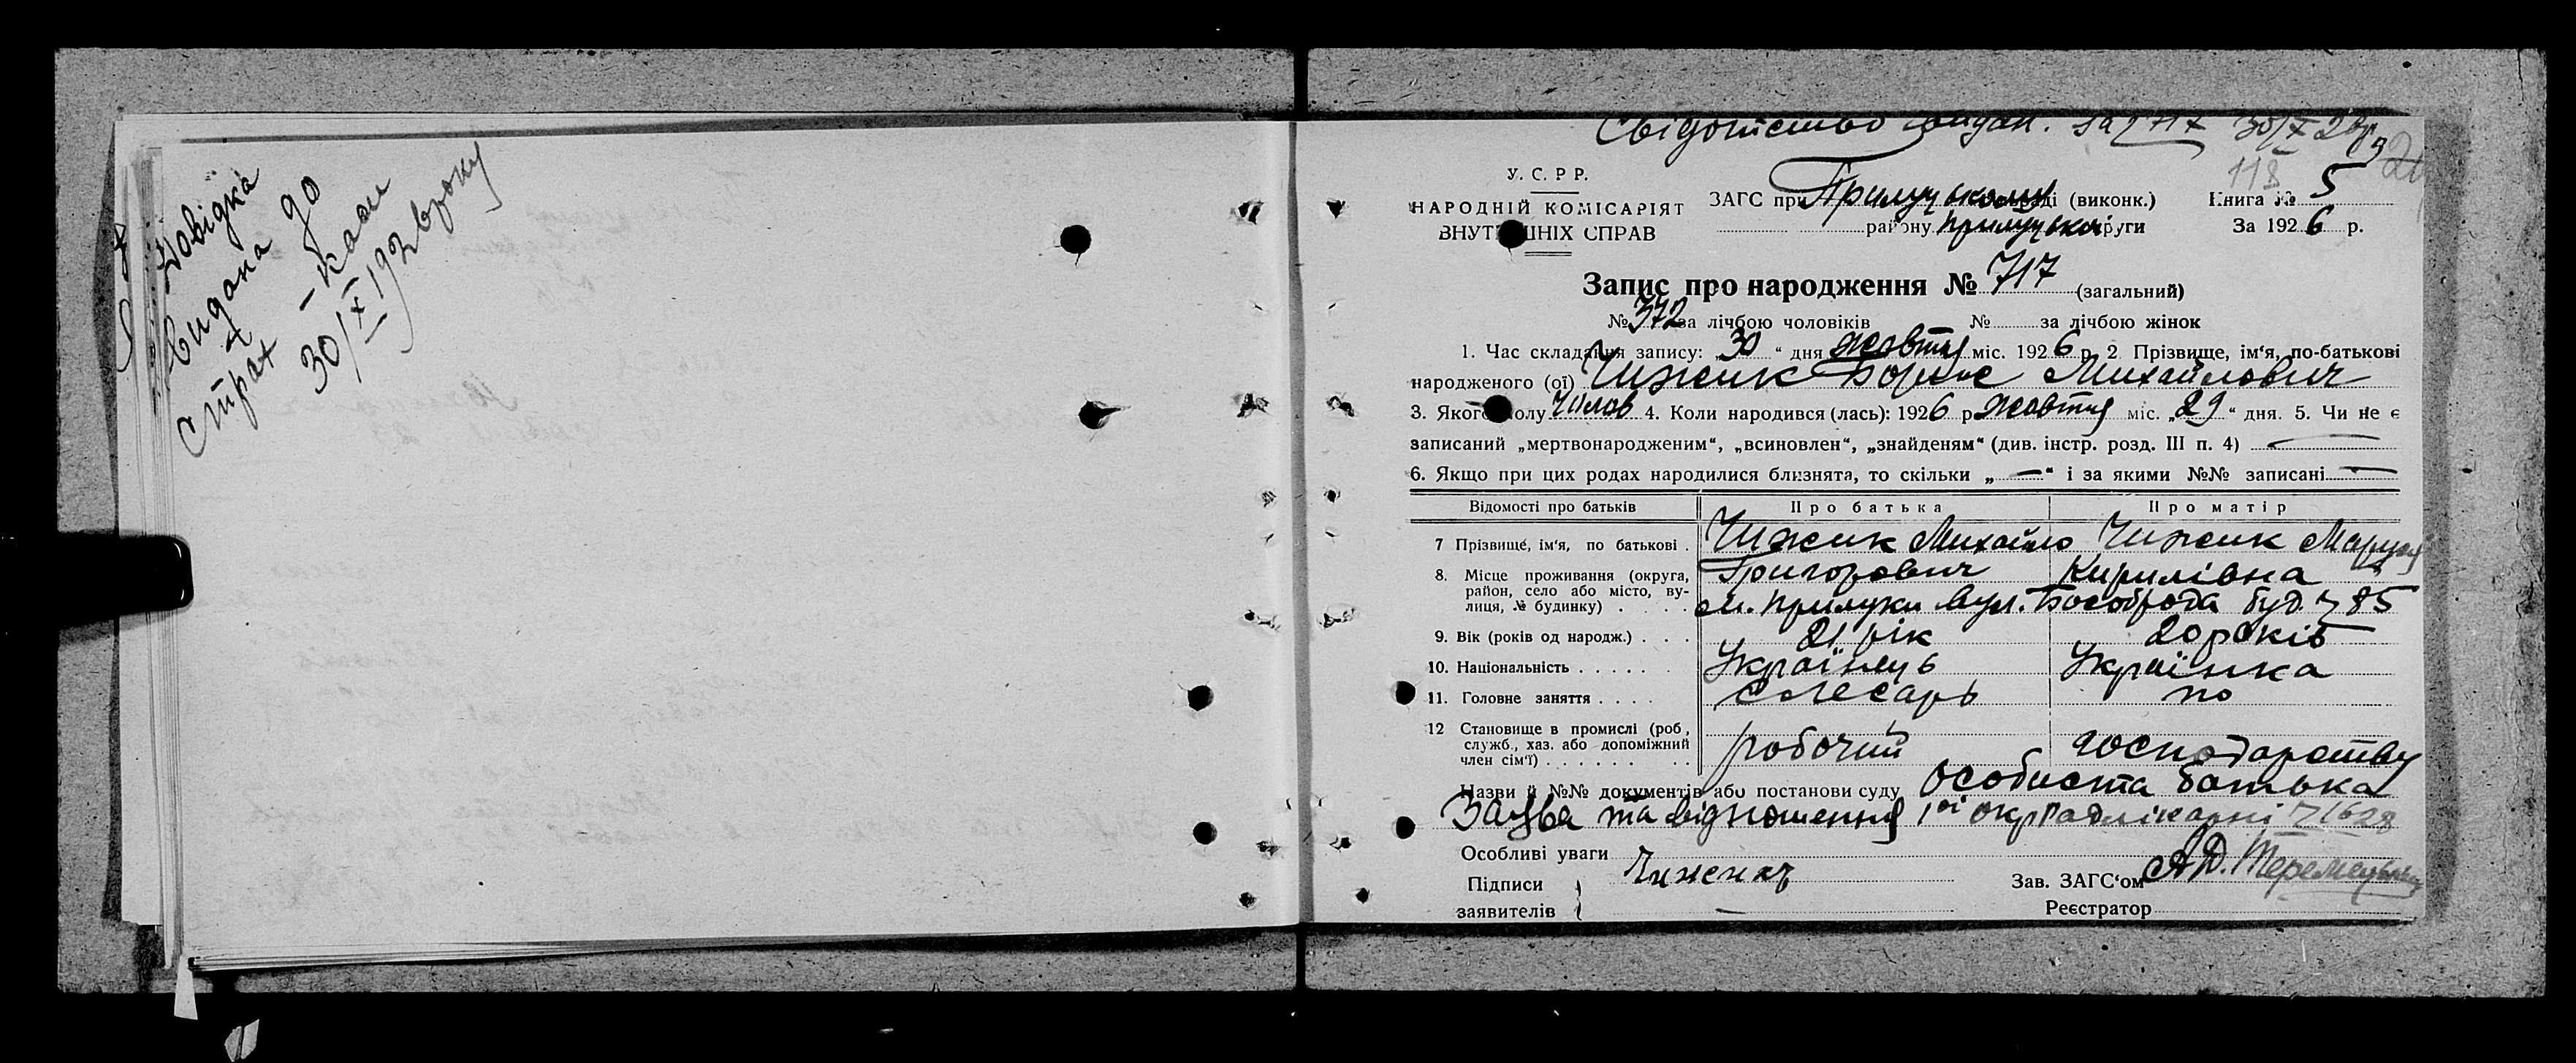 Довідка
видана до
страх – каси
30/X 1926 року
Свідоцтво видан. за № 717 30/X 26 р.
118
У. С. Р. Р.
НАРОДНІЙ КОМІСАРІЯТ
ВНУТРІШНІХ СПРАВ
ЗАГС при Прилуцькому раді (виконк.)
району Прилуцької округи
Книга № 5
За 1926 р.
Запис про народження № 717 (загальний)
№ 372 за лічбою чоловіків № за лічбою жінок
1. Час складання запису: „30“ дня жовтня міс. 1926 р. 2 Прізвище, ім‘я, по-батькові
народженого (ої) Чижик Борис Михайлович
3. Якого полу чолов 4. Коли народився (лась): 1926 р. жовтня міс. „29“ дня. 5. Чи не є
записаний „мертвонародженим“, „всиновлен“, „знайденям“ (див. інстр. розд. III п. 4) —
6. Якщо при цих родах народилися близнята, то скільки „—“ і за якими №№ записані —
Відомості про батьків Про батька Про матір
7 Прізвище, ім‘я, по батькові . Чижик Михайло Чижик Маруся
Григорович Кирилівна
8. Місце проживання (округа,
район, село або місто, ву-
лиця, № будинку) . . . . м. Прилуки вул. буд. № 85
9. Вік (років од народж.) . . . 21 рік 20 років
10. Національність . . . . . . Українець Українка
11. Головне заняття . . . . слесарь по
12 Становище в промислі (роб,
служб., хаз. або допоміжний
член сім‘ї) . . . . . . . . робочий господарству
Назви й №№ документів або постанови суду особиста батька
заява та відношення 1ої окррадлікарні № 1628
Особливі уваги
Підписи
заявителів
Чижик
—
Зав. ЗАГС‘ом
Реєстратор